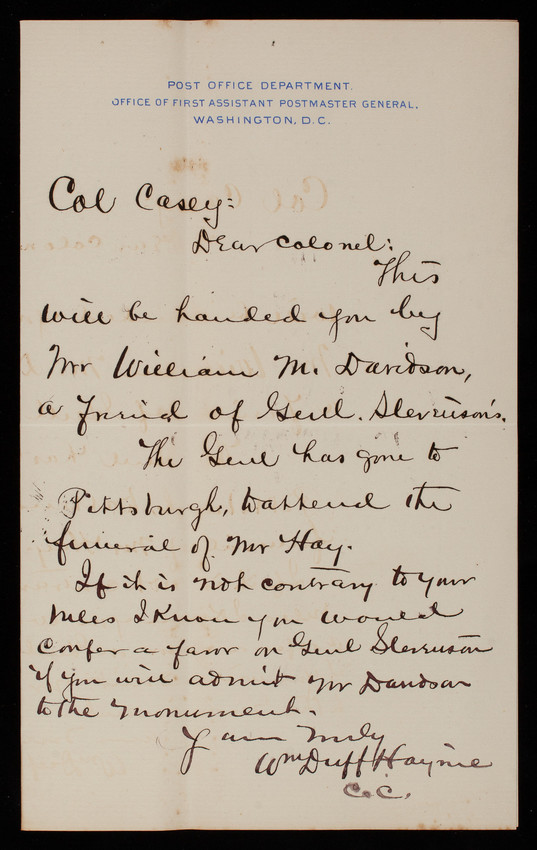 POST OFFICE DEPARTMENT.
OFFICE OF FIRST ASSISTANT POSTMASTER GENERAL,
WASHINGTON, D.C.
Col Casey:
Dear Colonel:
This
will be handed you by
Mr William M. Davidson,
a friend of Genl. Stevenson's.
The Genl has gone to
Pittsburgh, to attend the
funeral of Mr Hay.
If it is not contrary to your
rules I know you would
confer a favor on Genl Stevenson
if you will admit Mr Davidson
to the monument.
I am truly
Wm Duff Haynie
C.C.